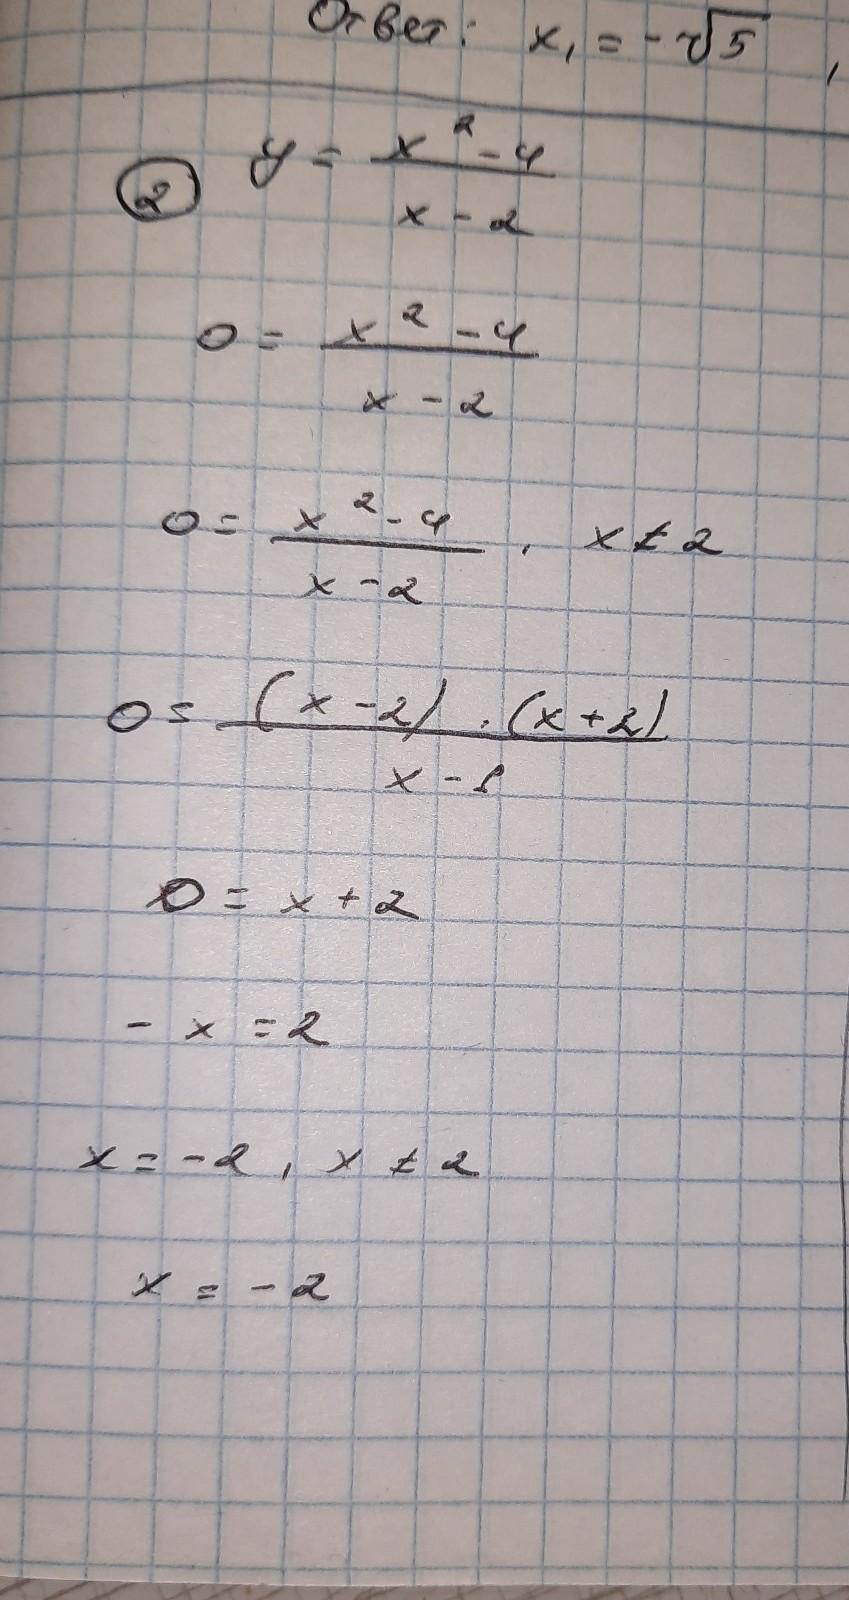 Ответ: x₁ = -√5,
② y = (x² - 4)/(x - 2)
0 = (x² - 4)/(x - 2)
0 = (x² - 4)/(x - 2), x ≠ 2
0 = ((x - 2) · (x + 2))/(x - 2)
0 = x + 2
- x = 2
x = -2, x ≠ 2
x = -2